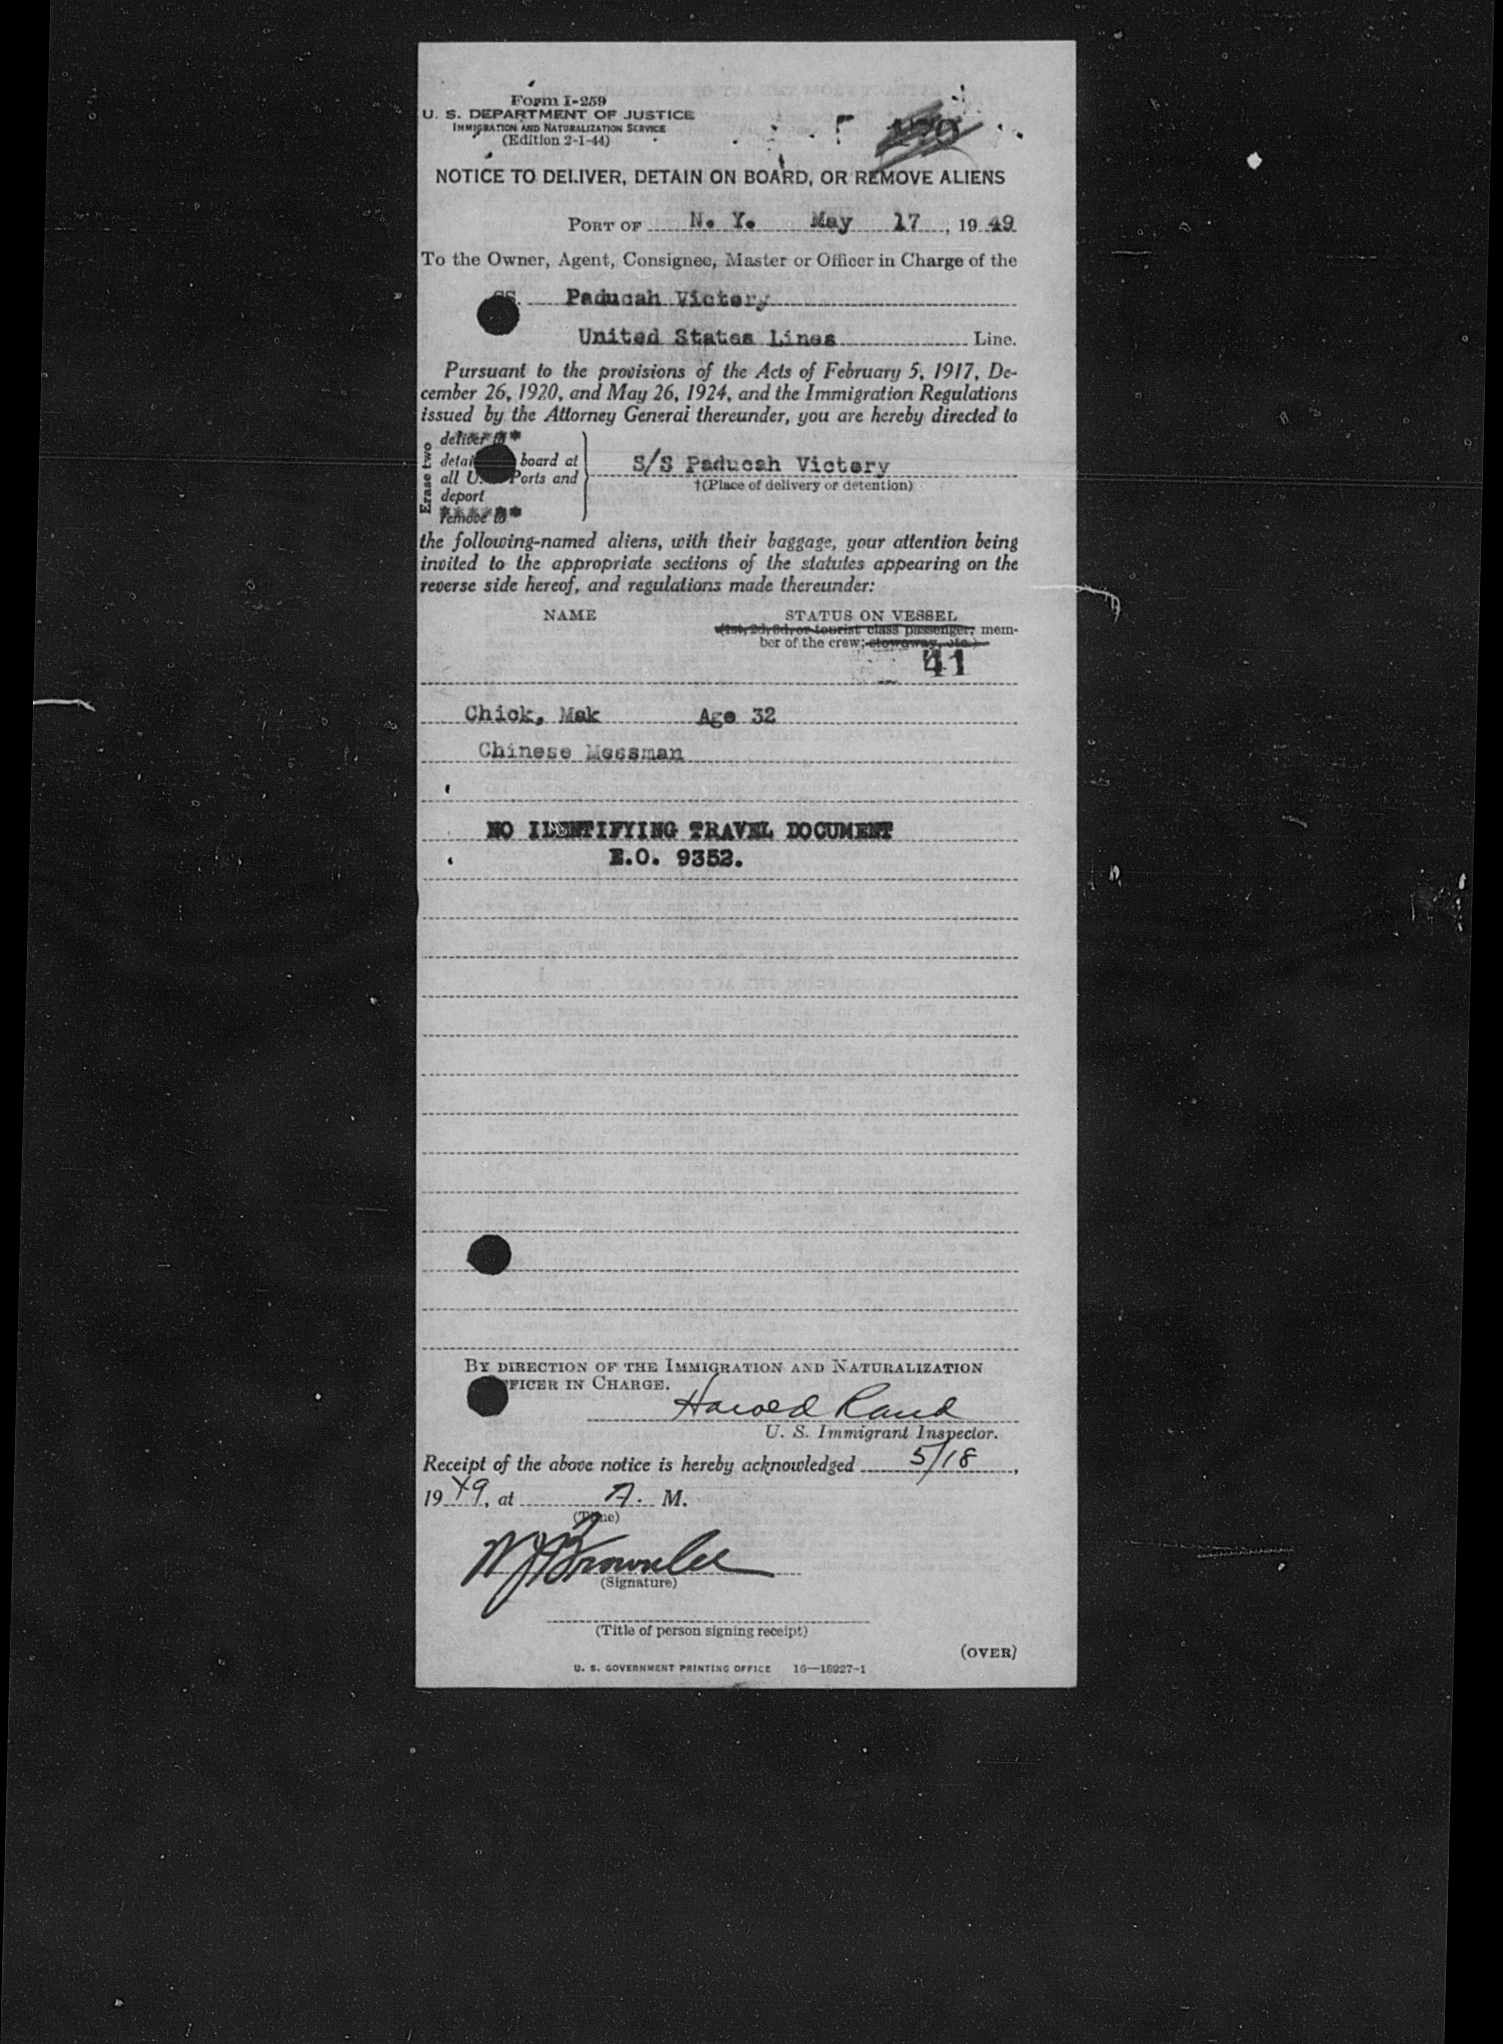 Form I-259
U. S. DEPARTMENT OF JUSTICE
IMMIGRATION AND NATURALIZATION SERVICE
(Edition 2-1-44)
NOTICE TO DELIVER, DETAIN ON BOARD, OR REMOVE ALIENS
PORT OF N. Y. May 17, 1949
To the Owner, Agent, Consignee, Master or Officer in Charge of the
SS. Paducah Victory
United States Lines Line.
Pursuant to the provisions of the Acts of February 5, 1917, De-
cember 26, 1920, and May 26, 1924, and the Immigration Regulations
issued by the Attorney General thereunder, you are hereby directed to
Erase two
deliver to
detain board at
all U. Ports and
deport
remove to
S/S Paducah Victory
†(Place of delivery or detention)
the following-named aliens, with their baggage, your attention being
invited to the appropriate sections of the statutes appearing on the
reverse side hereof, and regulations made thereunder:
NAME STATUS ON VESSEL
(1st, 2d, 3d, or tourist class passenger; mem-
ber of the crew; stowaway, etc.)
41
Chick, Mak Age 32
Chinese Messman
NO IDENTIFYING TRAVEL DOCUMENT
E.O. 9352.
BY DIRECTION OF THE IMMIGRATION AND NATURALIZATION
OFFICER IN CHARGE.
Harold Rand
U. S. Immigrant Inspector.
Receipt of the above notice is hereby acknowledged 5/18,
1949, at A. M.
(Time)
W J Brownlee
(Signature)
(Title of person signing receipt)
(OVER)
U. S. GOVERNMENT PRINTING OFFICE 16—18927-1